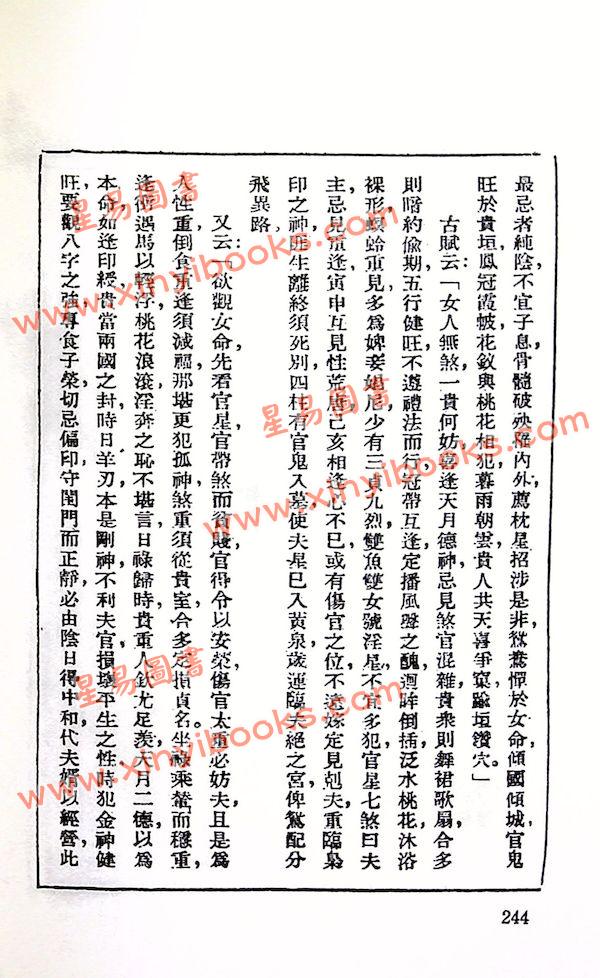 最忌者純陰,不宜子息,骨髓破殃,壓內外,薦枕星招涉是非,鴛鴦憚於女命,傾國傾城,官鬼
旺於貴垣,鳳冠霞帔,花釵與桃花相犯,暮雨朝雲,貴人共天喜爭窺,踰垣鑽穴。」
古賦云:「女人無煞,一貴何妨,喜逢天月德神,忌見煞官混雜,貴乘則舞裙歌扇,合多
則暗約偸期,五行健旺,不遵禮法而行,冠帶互逢,定播風聲之醜,迴眸倒插,泛水桃花,沐浴
裸形,螟蛉重見,多為婢妾娼尼,少有三貞九烈,雙魚雙女號淫星,不宜多犯,官星七煞曰夫
主,忌見重逢,寅申互見性荒唐,己亥相逢心不巳,或有傷官之位,不遠嫁定見剋夫,重臨梟
印之神,匪生離終須死別,四柱有官鬼入墓,使夫星巳入黃泉,歲運臨夫絕之宮,俾鴛配分
飛異路。
又云:「欲觀女命,先看官星,官帶煞而貧賤,官得令以安榮,傷官太重必妨夫,且是為
人性重,倒食重逢須減福,那堪更犯孤神,煞重須從貴室,合多定損貞名,坐祿乘驁而穩重,
逢衝遇馬以輕浮,桃花浪滾,淫奔之恥不堪言,日祿歸時,貴重人欽尤足羨,天月二德以為
本命,如逢印綬,貴當兩國之封,時日羊刃本是剛神,不利夫官,損壞平生之性,時犯金神健
旺,要觀八字之強專,食子榮,切忌偏印,守閨門而正靜,必由陰日得中和,代夫婿以經營,此
244
星易圖書
www.xinyibooks.com
星易圖書
www.xinyibooks.com
星易圖書
www.xinyibooks.com